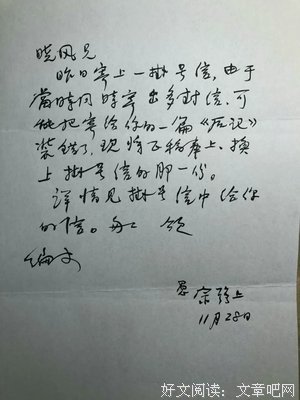 晓风兄
昨日寄上一掛号信,由于
當時同時寄出多封信,可
能把寄给你的一篇《后记》
装錯了,现将正稿奉上,换
上掛号信的那一份。
详情见掛号信中给你
的信。
编安
愚 宗 上
11月28日
好文阅读:文章吧网